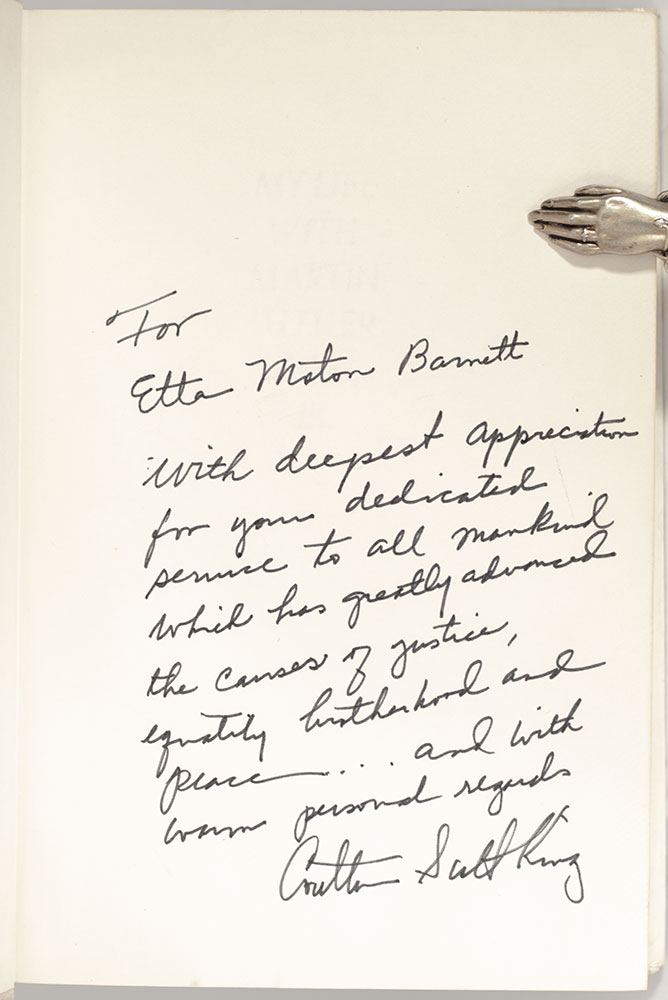 For
Etta Moton Barnett
With deepest appreciation
for your dedicated
service to all mankind
which has greatly advanced
the causes of justice,
equality brotherhood and
peace . . . and with
warm personal regards
Coretta Scott King
MY LIFE
WITH
MARTIN
LUTHER